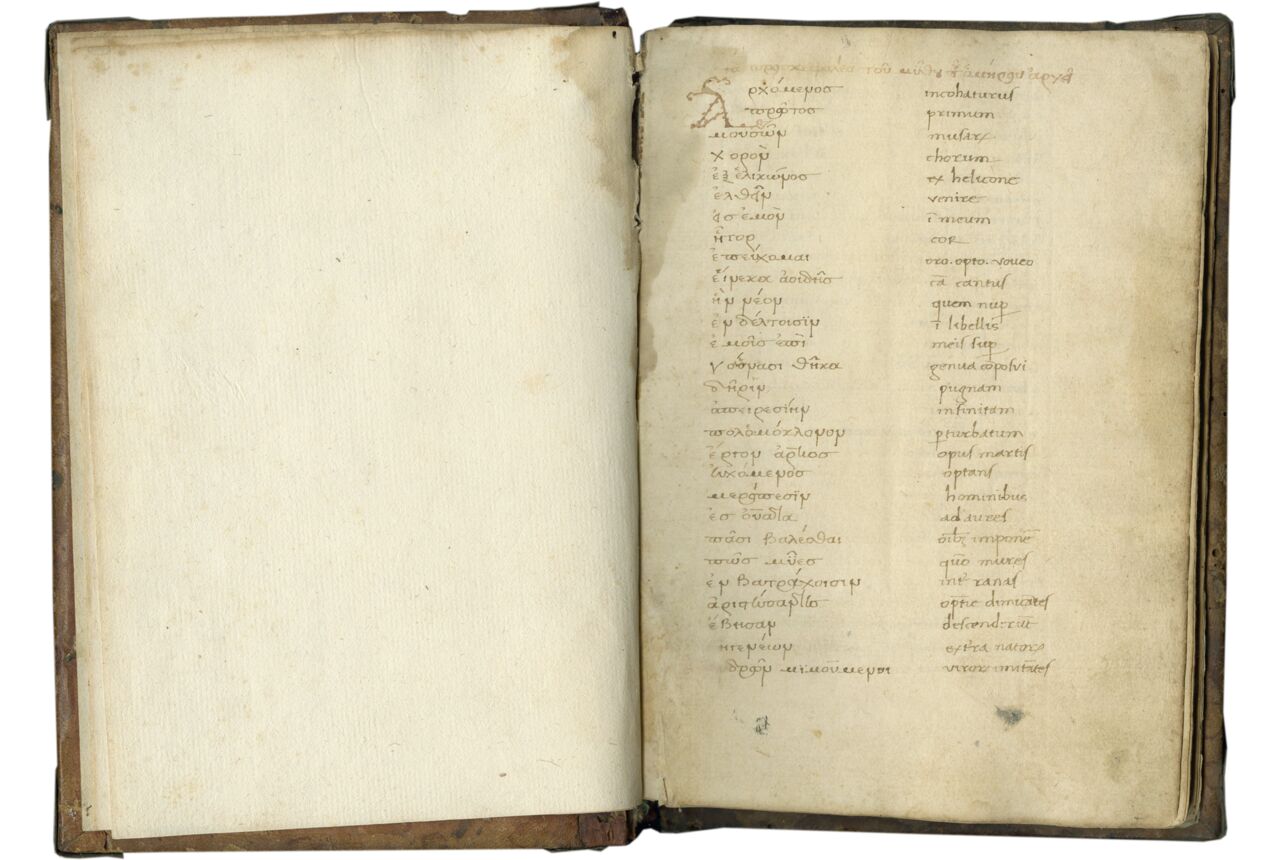 τοῦ ἀρχὴ
Ἀρχόμενος incohaturus
πρῶτος primum
μουσῶν musaꝝ
χορὸν chorum
ἐξ ἑλικῶνος ex helicone
ἐλθεῖν venire
εἰς ἐμὸν ī meum
ἦτορ cor
ἐπεύχομαι oro. opto. voveo
εἵνεκα ἀοιδῆς cā cantus
ἣν νέον quem nuꝑ
ἐν δέλτοισιν ī libellis
ἐμοῖς ἐπὶ meis suꝑ
γούνασι θῆκα genua cōposui
δῆριν pugnam
ἀπειρεσίην infinitam
πολεμόκλονον ꝑturbatum
ἔργον ἄρηος opus martis
εὐχόμενος optans
μερόπεσιν hominibus
ἐς οὔατα ad aures
πᾶσι βαλέσθαι oību imponē
πῶς μῦες quō mures
ἐν βατράχοισιν int̄ ranas
ἀριστεύσαντες optīe dimicātes
ἔβησαν descenderūt
γηγενέων ex terra natoꝝ
ἀνδρῶν μιμούμενοι viroꝝ imitātes